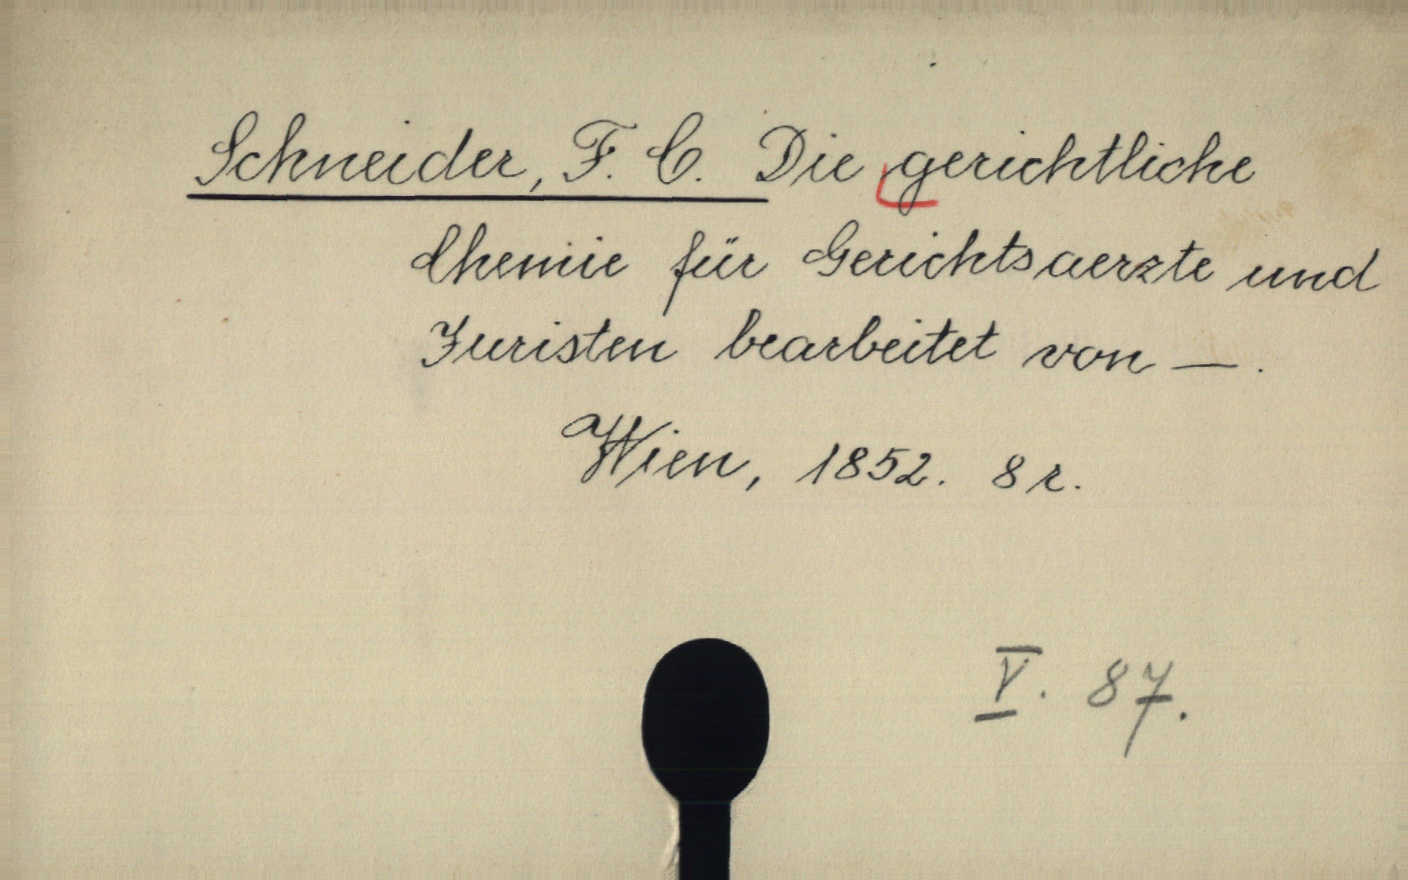 Schneider, F. C. Die gerichtliche
Chemie für Gerichtsaerzte und
Juristen bearbeitet von — .
Wien, 1852. 8 r.
V. 87.